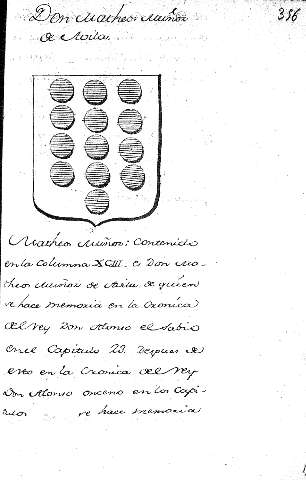 Don Matheo Muñoz
de Avila.
386
Matheo Muñoz: Contenido
en la Columna XCIII. es Don Ma-
theo Muñoz de Avila de quien
se hace memoria en la Cronica
del Rey Don Alonso el Sabio
en el Capitulo 23. Despues de
esto en la Cronica del Rey
Don Alonso onceno en los Capi-
tulos se hace memoria